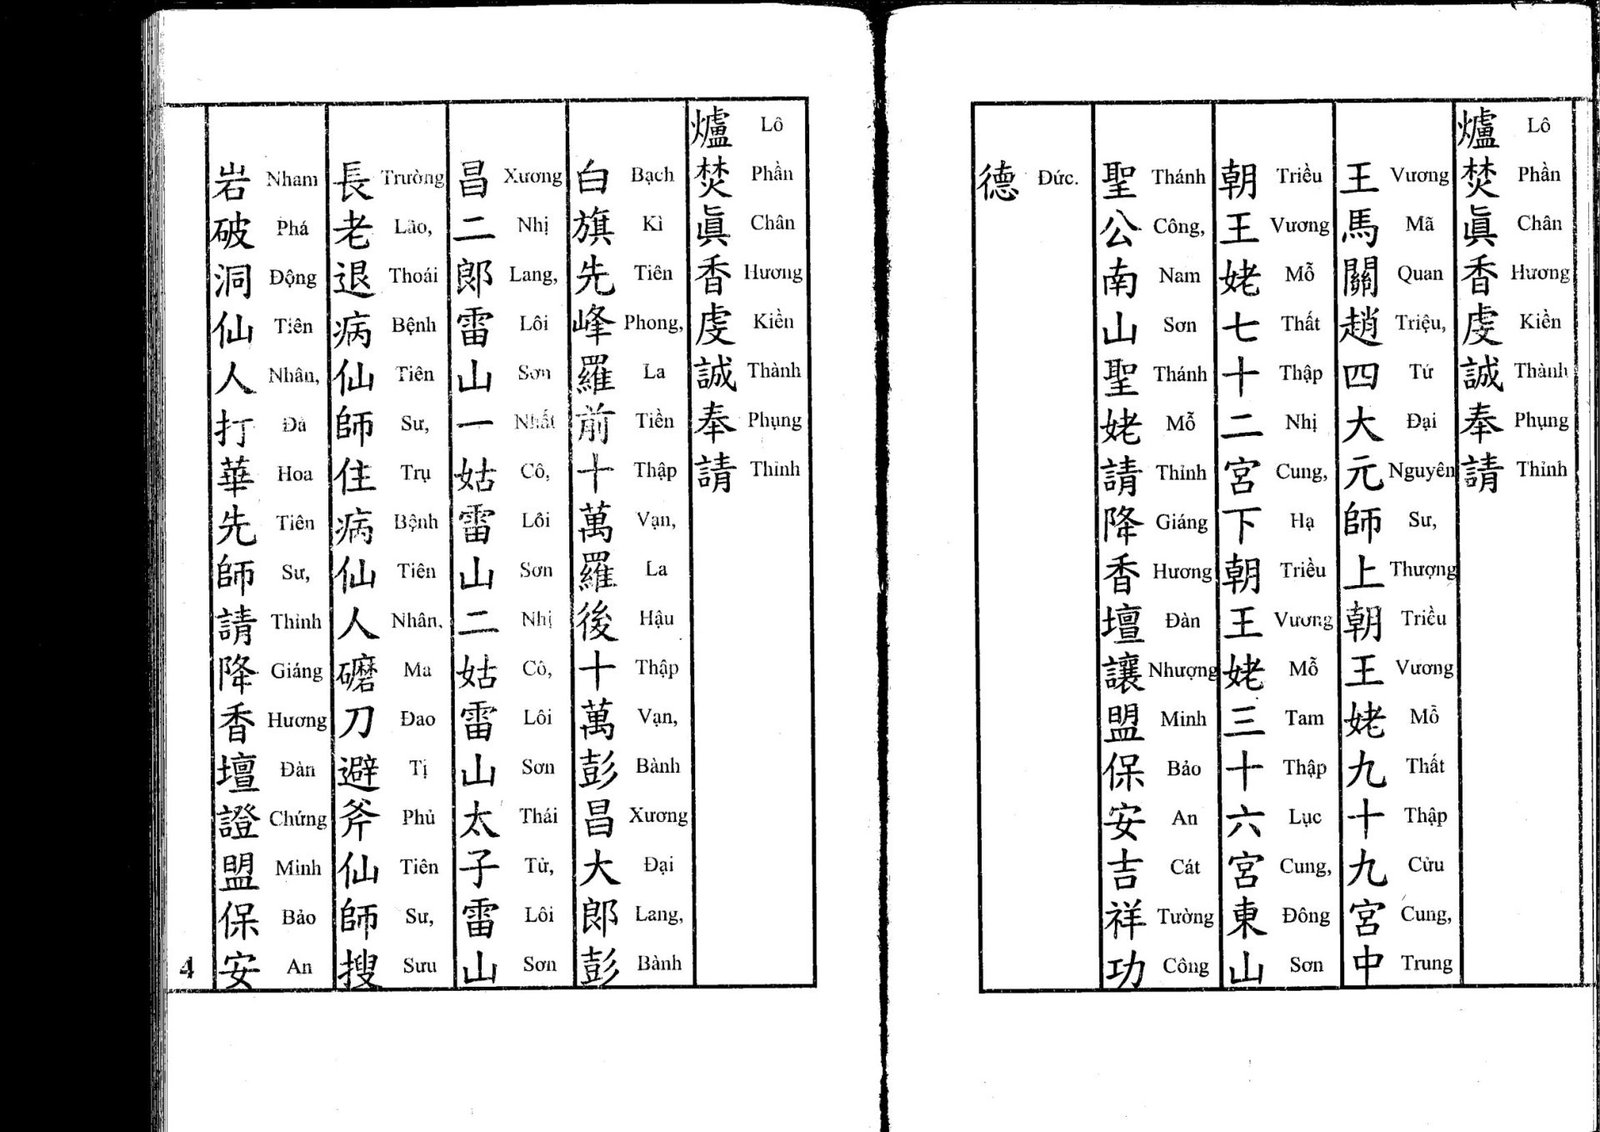 爐焚眞香虔誠奉請
Lô Phần Chân Hương Kiền Thành Phụng Thỉnh
王馬關趙四大元師上朝王姥九十九宮中
Vương Mã Quan Triệu, Tứ Đại Nguyên Sư, Thượng Triều Vương Mỗ Thất Thập Cửu Cung, Trung
朝王姥七十二宮下朝王姥三十六宮東山
Triều Vương Mỗ Thất Thập Nhị Cung, Hạ Triều Vương Mỗ Tam Thập Lục Cung, Đông Sơn
聖公南山聖姥請降香壇讓盟保安吉祥功
Thánh Công, Nam Sơn Thánh Mỗ Thỉnh Giáng Hương Đàn Nhượng Minh Bảo An Cát Tường Công
德
Đức.
爐焚眞香虔誠奉請
Lô Phần Chân Hương Kiền Thành Phụng Thỉnh
白旗先峰羅前十萬羅後十萬彭昌大郎彭
Bạch Kì Tiên Phong, La Tiền Thập Vạn, La Hậu Thập Vạn, Bành Xương Đại Lang, Bành
昌二郎雷山一姑雷山二姑雷山太子雷山
Xương Nhị Lang, Lôi Sơn Nhất Cô, Lôi Sơn Nhị Cô, Lôi Sơn Thái Tử, Lôi Sơn
長老退病仙師住病仙人磨刀避斧仙師搜
Trường Lão, Thoái Bệnh Tiên Sư, Trụ Bệnh Tiên Nhân, Ma Đao Tị Phủ Tiên Sư, Sưu
岩破洞仙人打華先師請降香壇證盟保安
Nham Phá Động Tiên Nhân, Đả Hoa Tiên Sư, Thỉnh Giáng Hương Đàn Chứng Minh Bảo An
4